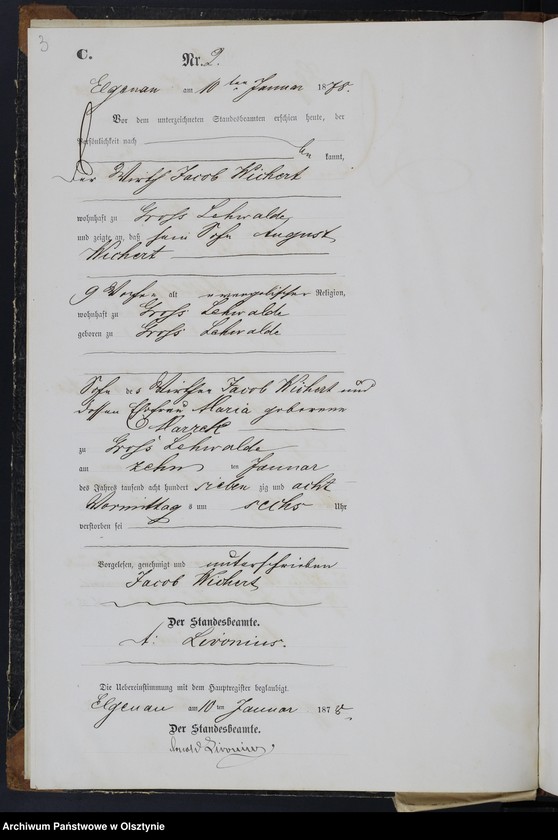 3
C.
Nr. 2.
Elgenau am 10ten Januar 1878.
Vor dem unterzeichneten Standesbeamten erschien heute, der
Persönlichkeit nach
kannt,
der Wirth Jacob Wichert
wohnhaft zu Gross Lehwalde
und zeigte an, daß sein Sohn August
Wichert
9 Wochen alt evangelischer Religion,
wohnhaft zu Gross Lehwalde
geboren zu Gross Lehwalde
Sohn des Wirthen Jacob Wichert und
dessen Ehefrau Maria geborene
Marrek
zu Gross Lehwalde
am zehn ten Januar
des Jahres tausend acht hundert sieben zig und acht
Vormittag s um sechs Uhr
verstorben sei
Vorgelesen, genehmigt und unterschrieben
Jacob Wichert
Der Standesbeamte.
Livonius.
Die Uebereinstimmung mit dem Hauptregister beglaubigt
Elgenau am 10 ten Januar 1878.
Der Standesbeamte.
Livonius
Archiwum Państwowe w Olsztynie